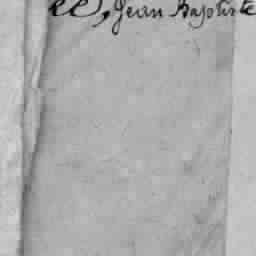 ee, Jean Baptiste